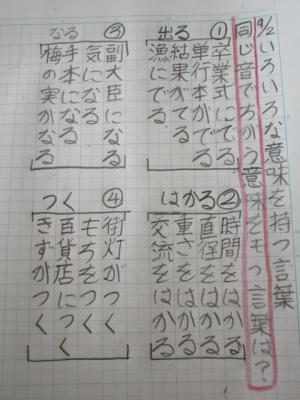 9/2 いろいろな意味を持つ言葉
同じ音でちがう意味をもつ言葉は?
① 出る
卒業式にでる
単行本がでる
結果がでる
漁にでる
② はかる
時間をはかる
直径をはかる
重さをはかる
交流をはかる
③ なる
副大臣になる
気になる
手本になる
梅の実がなる
④ つく
街灯がつく
もちをつく
百貨店につく
きずがつく